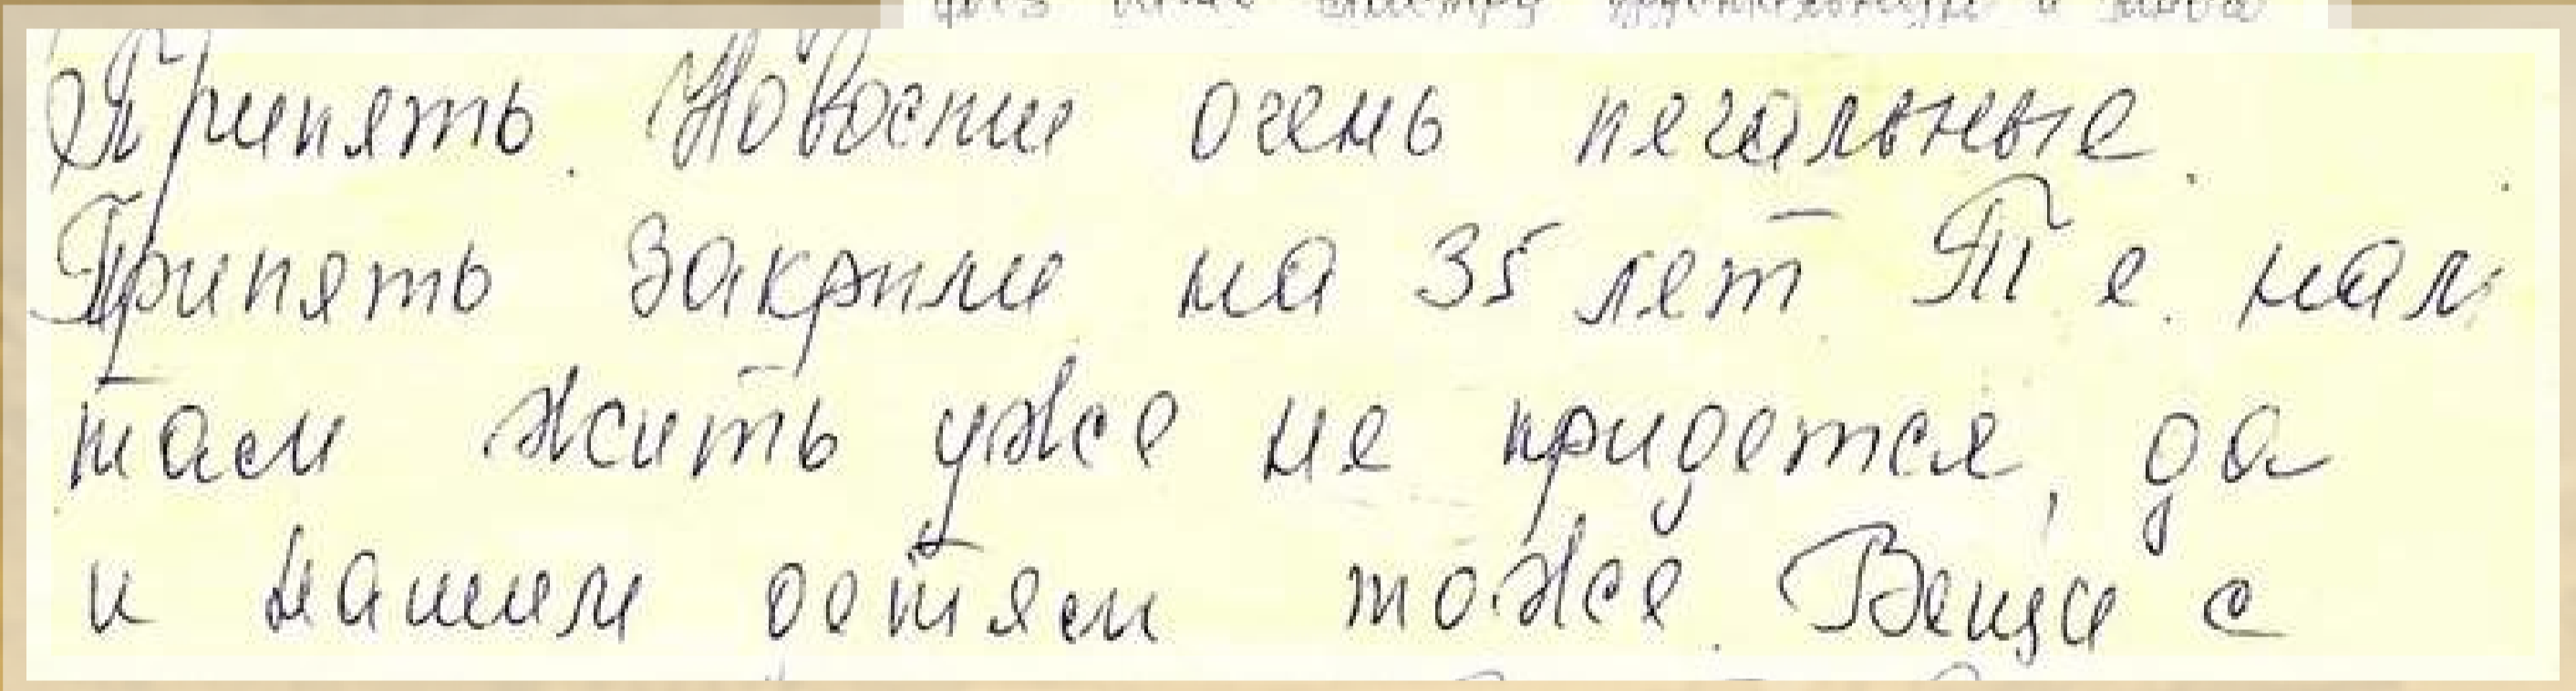 Припять. Новости очень печальные.
Припять закрыли на 35 лет. Т.е. нам
там жить уже не придется, да
и нашим детям тоже. Вещи с